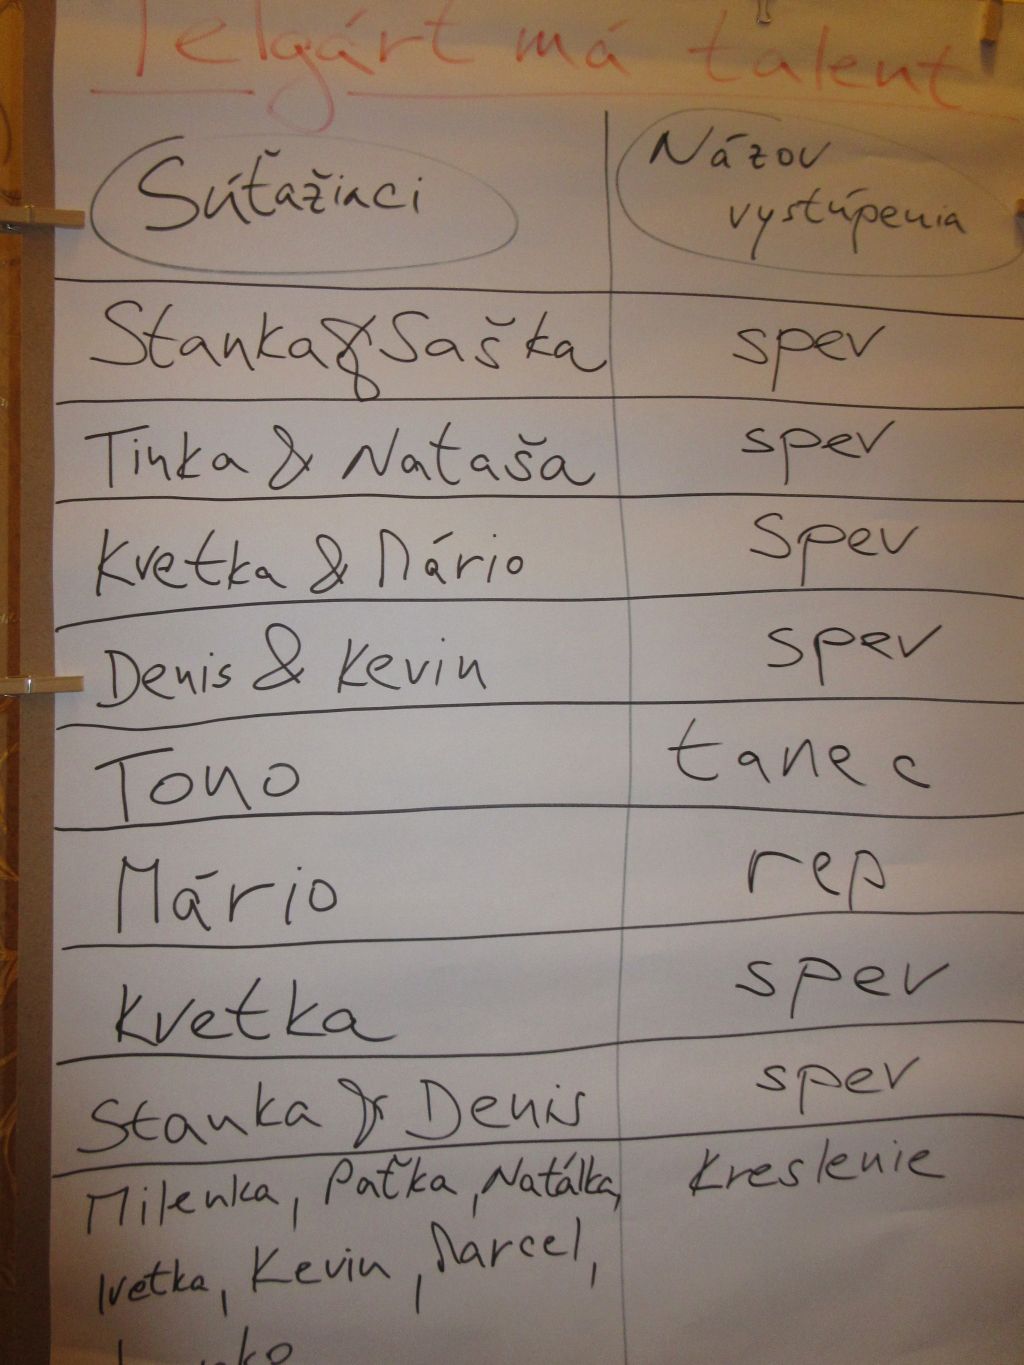 Telgárt má talent
Súťažiaci
Názov
vystúpenia
Stanka & Saška spev
Tinka & Nataša spev
Kvetka & Mário Spev
Denis & Kevin spev
Tono tanec
Mário rep
Kvetka spev
Stanka & Denis spev
Milenka, Paťka, Natálka, Kreslenie
Ivetka, Kevin, Marcel,